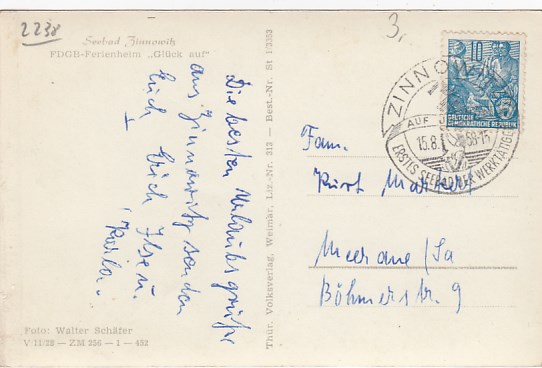 2238
3,
Seebad Zinnowitz
FDGB-Ferienheim „Glück auf"
Die besten Urlaubsgrüße
aus Zinnowitz senden
Euch Erich Ilse u.
Karla.
Foto: Walter Schäfer
V/11/28 — ZM 236 — 1 — 452
Thür. Volksverlag, Weimar, Liz.-Nr. 313 — Best.-Nr. St 1/3353
10
DEUTSCHE
DEMOKRATISCHE REPUBLIK
ZINNOWITZ
AUF
15.8.58-15
ERSTES SEEBAD DER WERKTÄTIGEN
Fam.
Kurt
Meerane/Sa
Böhmerstr. 9